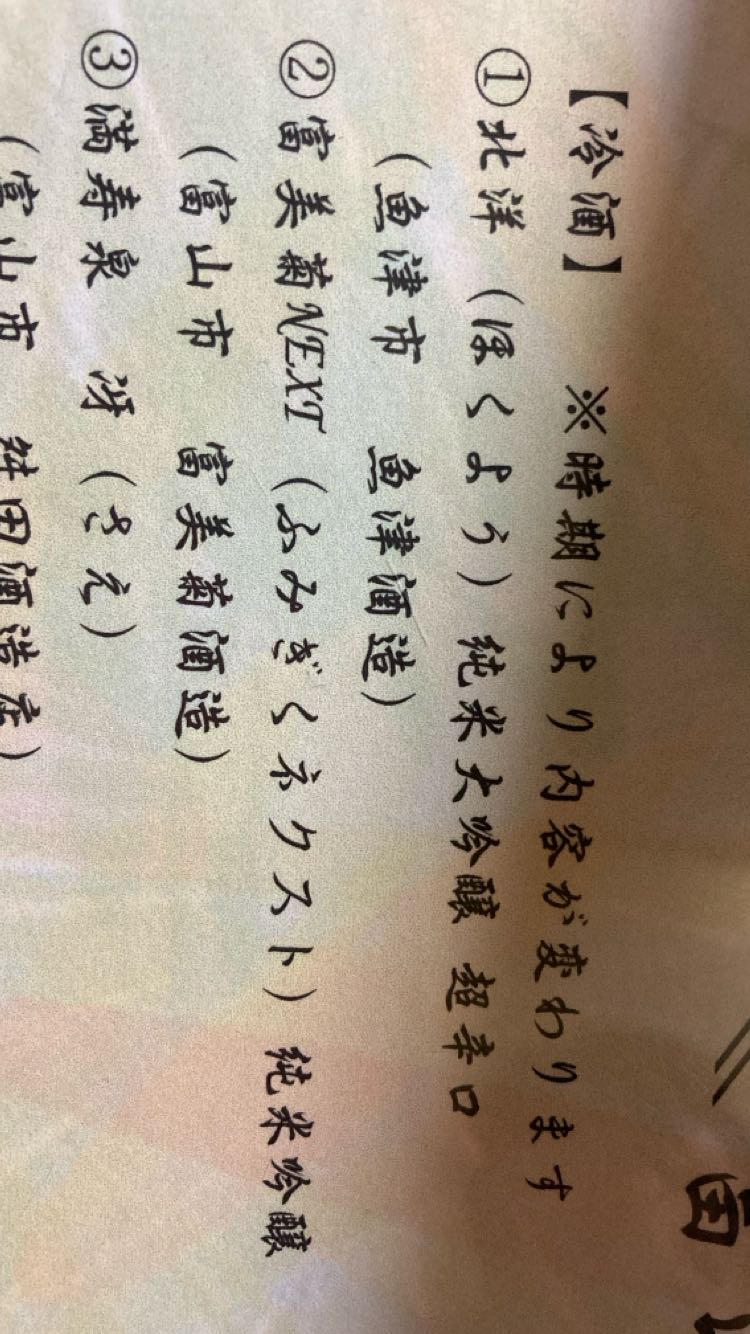 【冷酒】 ※時期により内容が変わります
①北洋（ほくよう）純米大吟醸 超辛口
（魚津市 魚津酒造）
②富美菊NEXT（ふみぎくネクスト）純米吟醸
（富山市 富美菊酒造）
③満寿泉 冴（さえ）
（富山市 舛田酒造店）